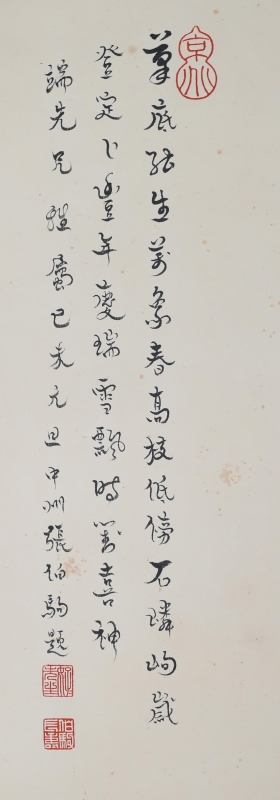 筆底能生萬象春高枝低傍石嶙峋歲
登定卜豐年慶瑞雪飄時對喜神
端先兄雅屬己未元旦中州張伯駒題